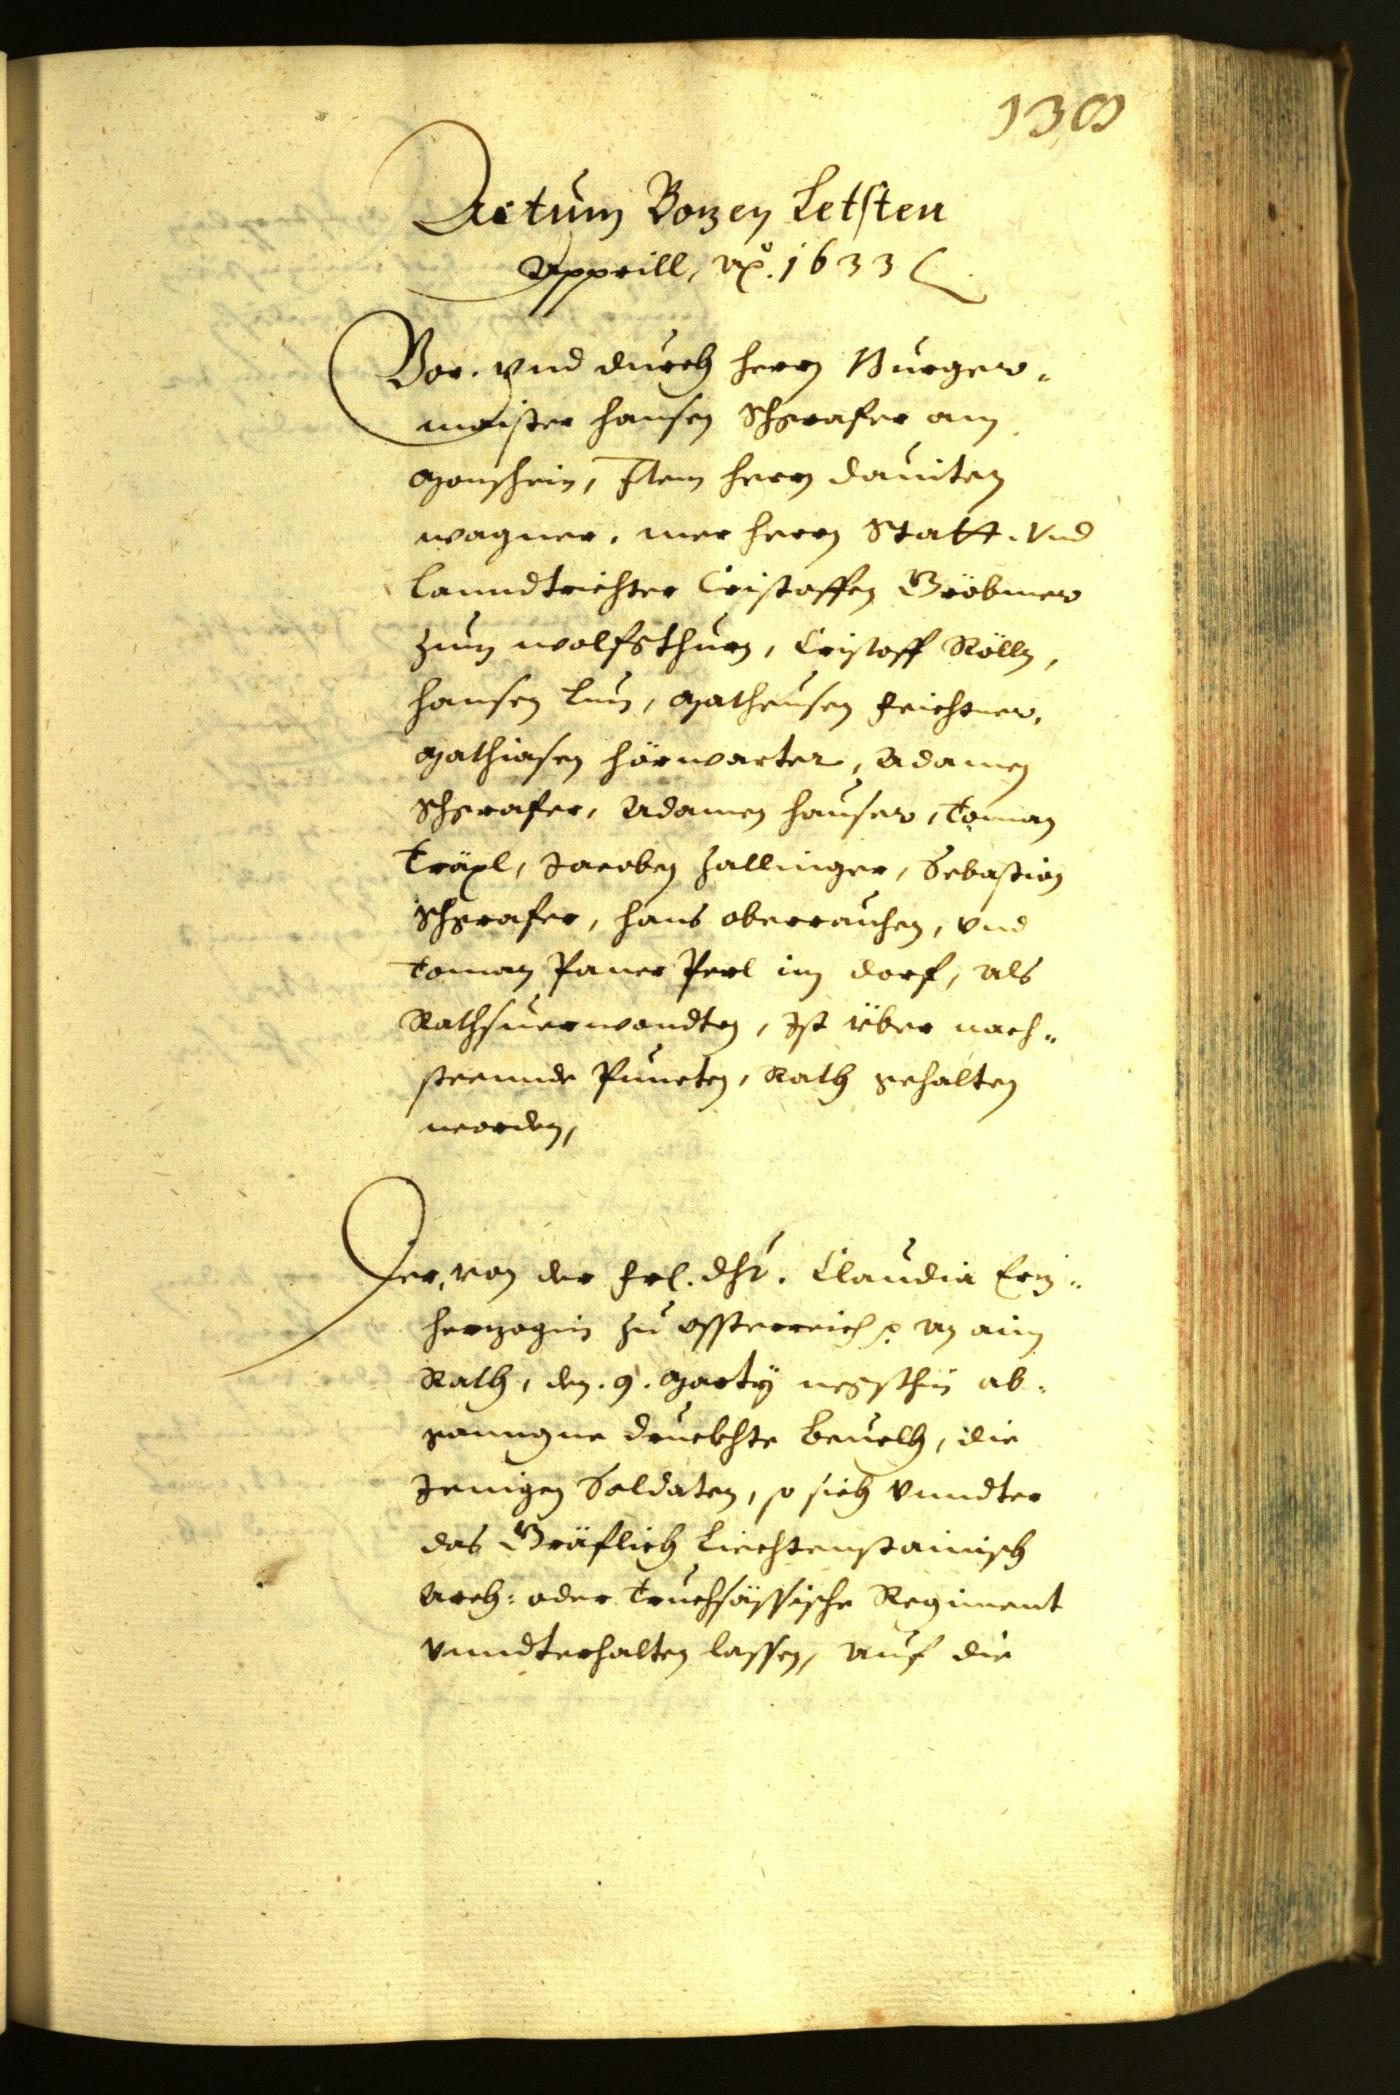 130
Actum Bozen Letsten
Apprill, Aõ. 1633
Vor. vnd durch herrn Burger-
maister Hansen Schgrafer am
Monschein, Item herrn Dauiten
Wagner, mer herrn Statt- Vnd
Lanndtrichter Cristoffen Gröbmer
zum Wolfsthurn, Cristoff Rölln,
Hansen Lun, Matheusen Feichtner,
Mathiasen Hörwarter, Adamen
Schgrafer, Adamen Hauser, Toman
Träxl, Jacoben Zallinger, Sebastian
Schgrafer, Hans Oberrauchen, vnd
Toman Paner Perl im Dorf, als
Rathsuerwondten, Ist über nach-
steennde Puncten, Rath gehalten
worden,
Der, von der Frl. Dht. Claudia Erz-
herzogin zu Össterreich an ain
Rath, den. 9. Marty negsthin ab-
ganngne Druckhte Beuelh, die
Jenigen Soldaten, so sich vnndter
das Gräflich Liechtenstainisch
Auch: oder Truchsässische Regiment
vnndterhalten lassen, auf die